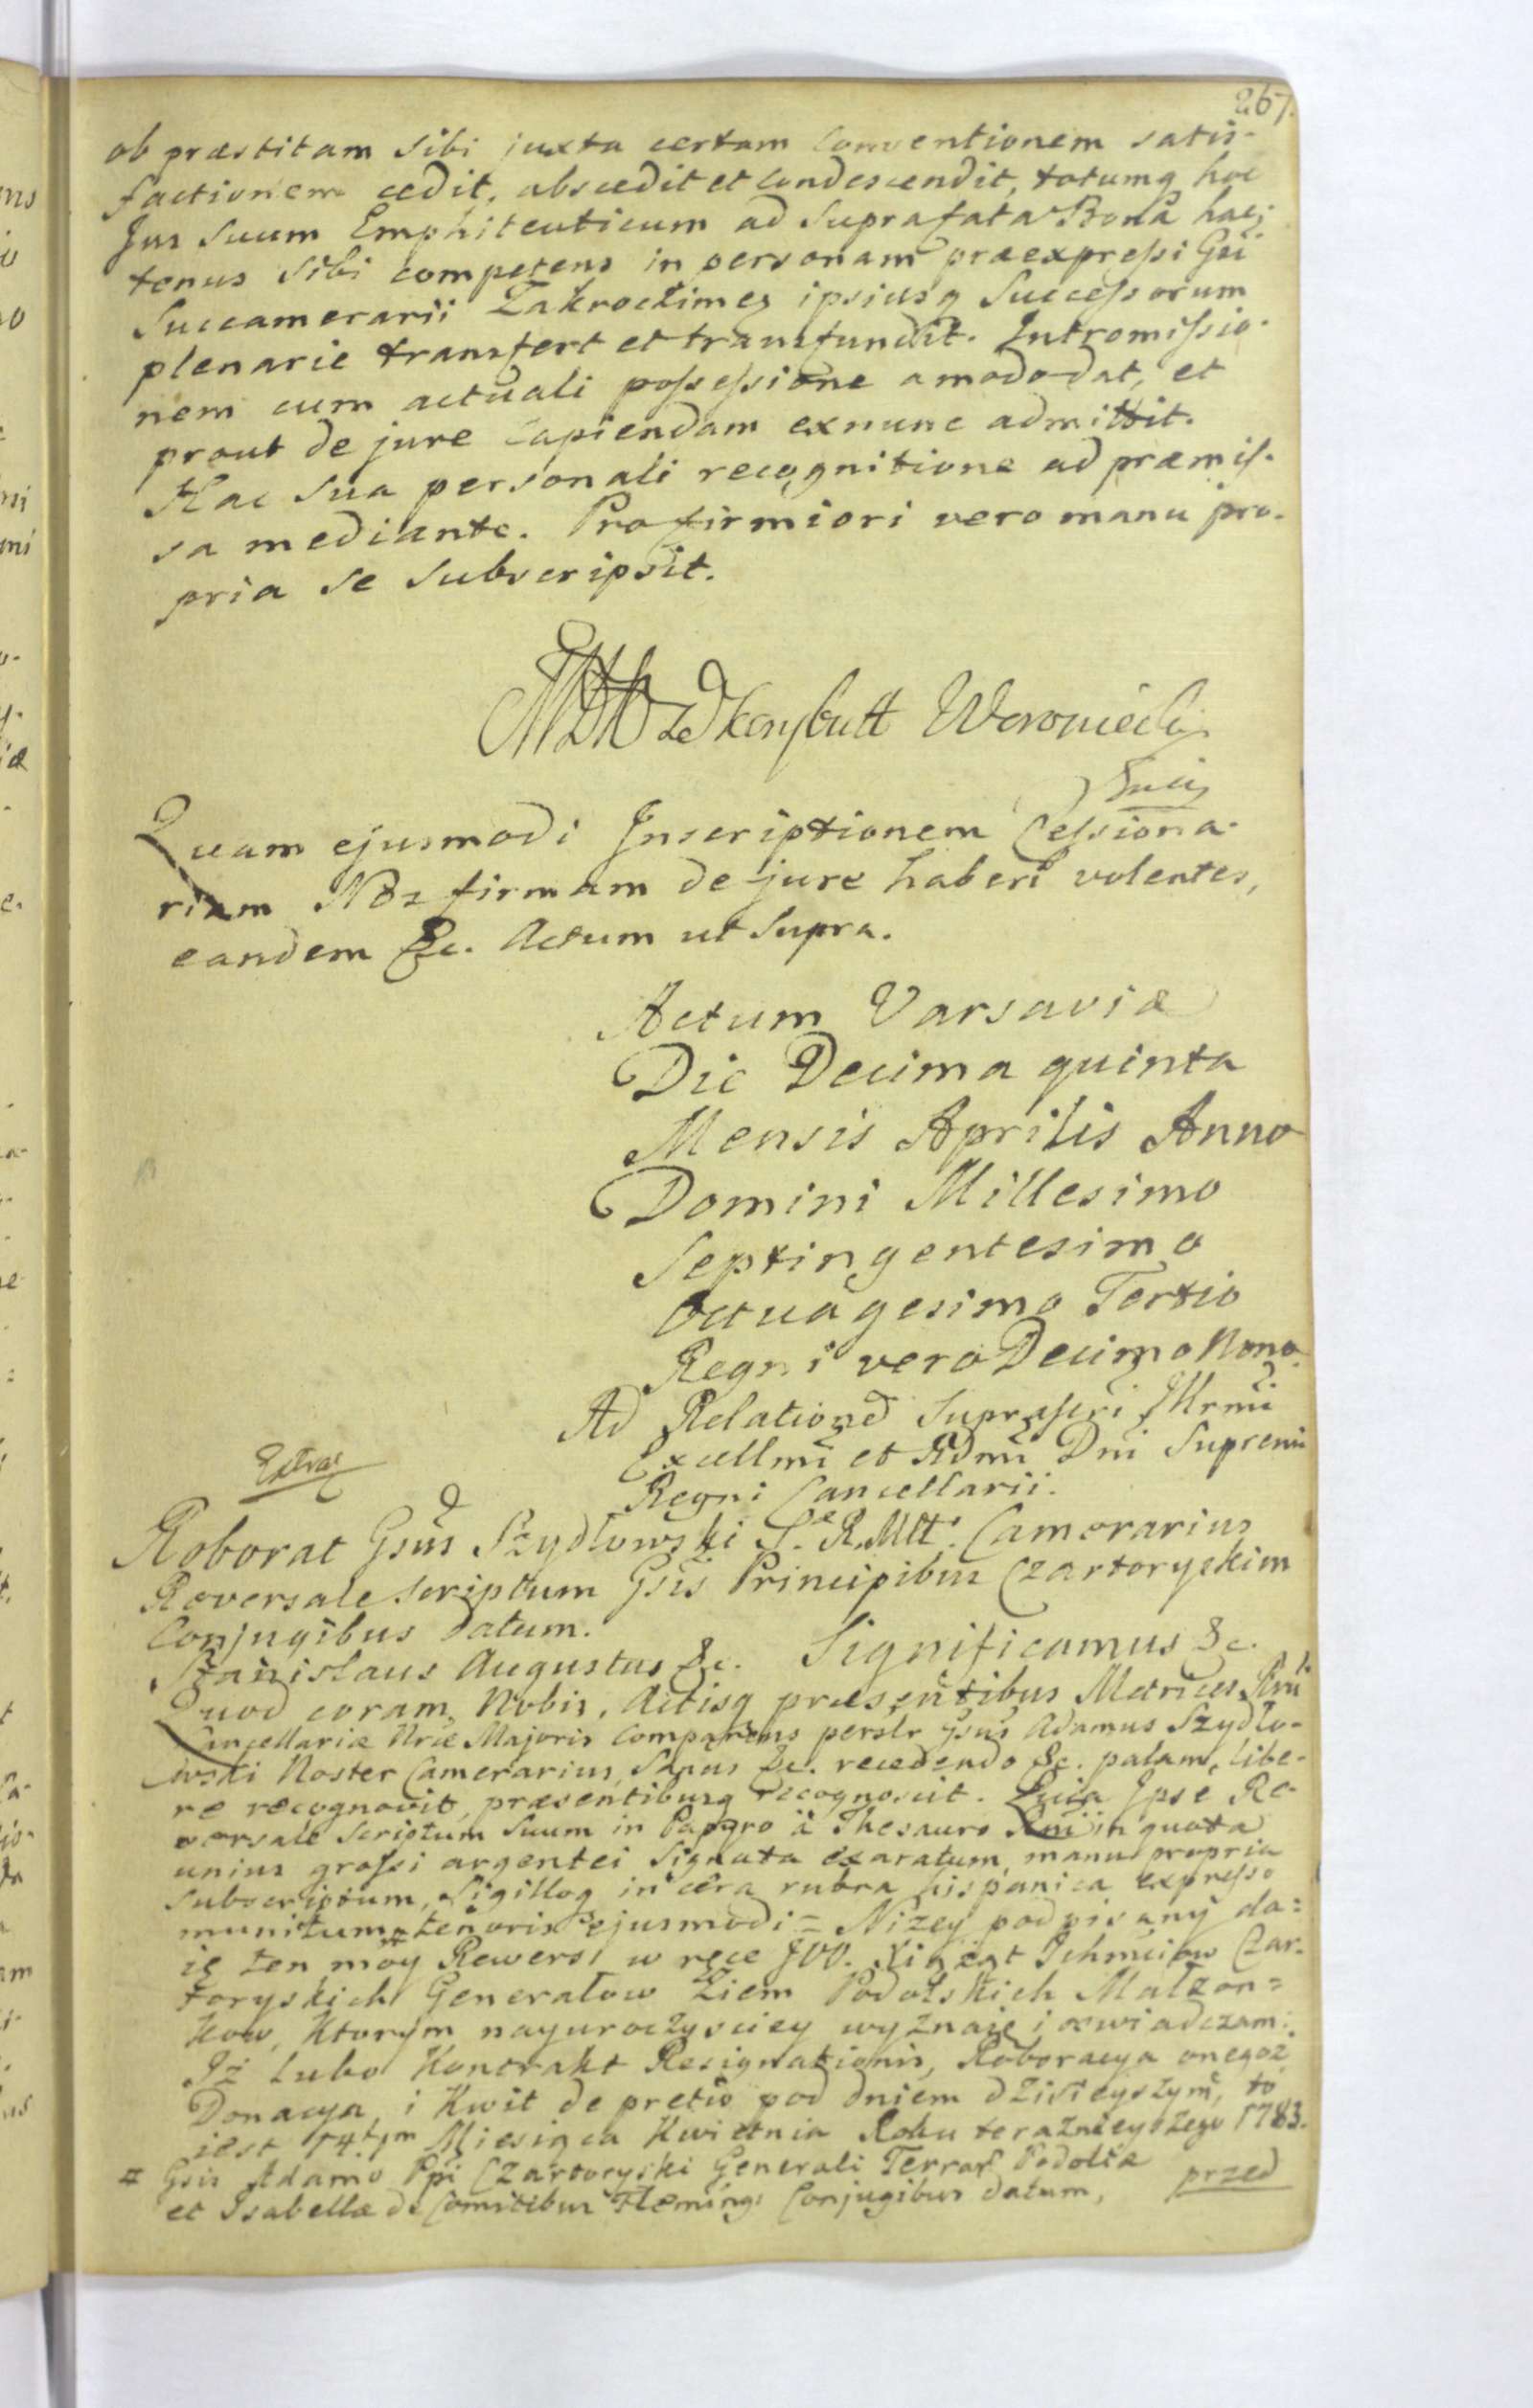 267.
ob præstitam sibi juxta certam conventionem satis-
factionem cedit, abscedit et condescendit, totumq hoc
Jus suum Emphiteuticum ad suprafata Bona hac-
tenus sibi competens in personam præexpressi Gsi
Succamerarii Zakroctimes ipsiusq Successorum
plenarie transfert et transfundit. Intromissio-
nem cum actuali possessione a modo dat, et
prout de jure capiendam exnunc admittit.
Hac sua personali recognitione ad præmis-
sa mediante. Pro firmiori vero manu pro-
pria se subscripsit.
Korybutt Woroniecky
Quam ejusmodi Inscriptionem Cessiona-
riam Nos firmam de jure haberi volentes,
eandem &c. Actum ut supra.
Actum Varsaviæ
Die Decima quinta
Mensis Aprilis Anno
Domini Millesimo
Septingentesimo
Octuagesimo Tertio
Regni vero Decimo Nono.
Ad Relationē suprascri Illrmi
Excellmi et Rdmi Dni Supremi
Regni Cancellarii.
Extrac
Roborat Gsus Szydlowski S. R. Mtt. Camerarius
Reversale scriptum Gsis Principibus Czartoryskim
Conjugibus datum.
Stanislaus Augustus &c. Significamus &c.
Quod coram Nobis, Actisq præsentibus Metrices Rni
Cancellariæ Nræ Majoris Comparens perslr Gsus Adamus Szydlo-
wski Noster Camerarius, Sanus &c. recedendo &c. palam, libe-
re recognovit, præsentibusq recognoscit. Quia Ipse Re-
versale scriptum suum in Papyro à Thesauro Rni in quota
unius grossi argentei signata exaratum, manu propria
subscriptum, Sigilloq in cera rubra hispanica expresso
munitum # tenoris ejusmodi = Nizey podpisany da=
ię ten moy Rewers w ręce JOO. Xiążąt Ichmciow Czar-
toryskich Generałow Ziem Podolskich Małzon=
kow, Ktorym nayuroczysciey wyznaię i oswiadczam:
Iż lubo Kontrakt Resignationis, Roboracya onegoz
Donacya, i Kwit de pretio pod dniem dzisieyszym, to
iest 14tym Miesiąca Kwietnia Roku teraznieyszego 1783.
# Gsis Adamo Ppi Czartoryski Generali Terrar Podoliæ
et Isabellæ de Comitibus Flemings Conjugibus datum,
przed